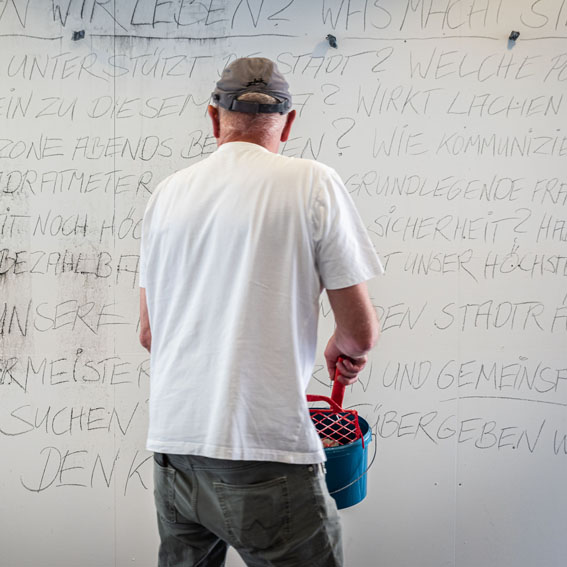 WIR LEBEN? WAS MACHT
UNTERSTÜTZT DIE STADT? WELCHE
ZU DIESEM ? WIRKT LACHEN
ZONE ABENDS ? WIE KOMMUNIZIE
DRATMETER GRUNDLEGENDE FRA
IT NOCH HÖC SICHERHEIT? HA
BEZAHLBA T UNSER HÖCHST
UNSERE DEN STADTRÄ
RMEISTER N UND GEMEINSA
SUCHEN ÜBERGEBEN W
DENK